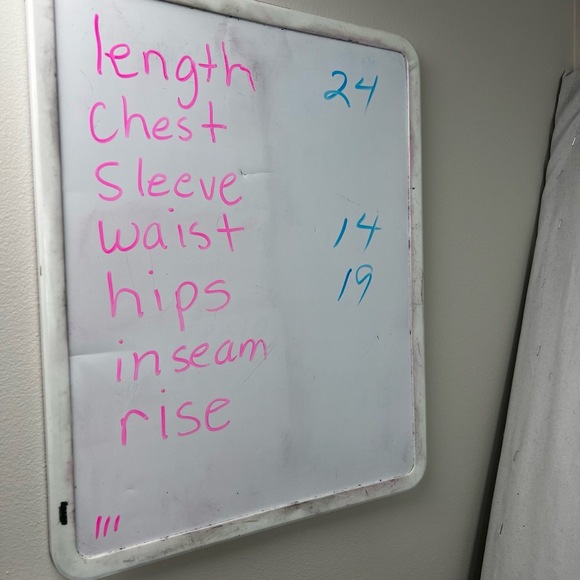 length 24
Chest
Sleeve
waist 14
hips 19
inseam
rise
III